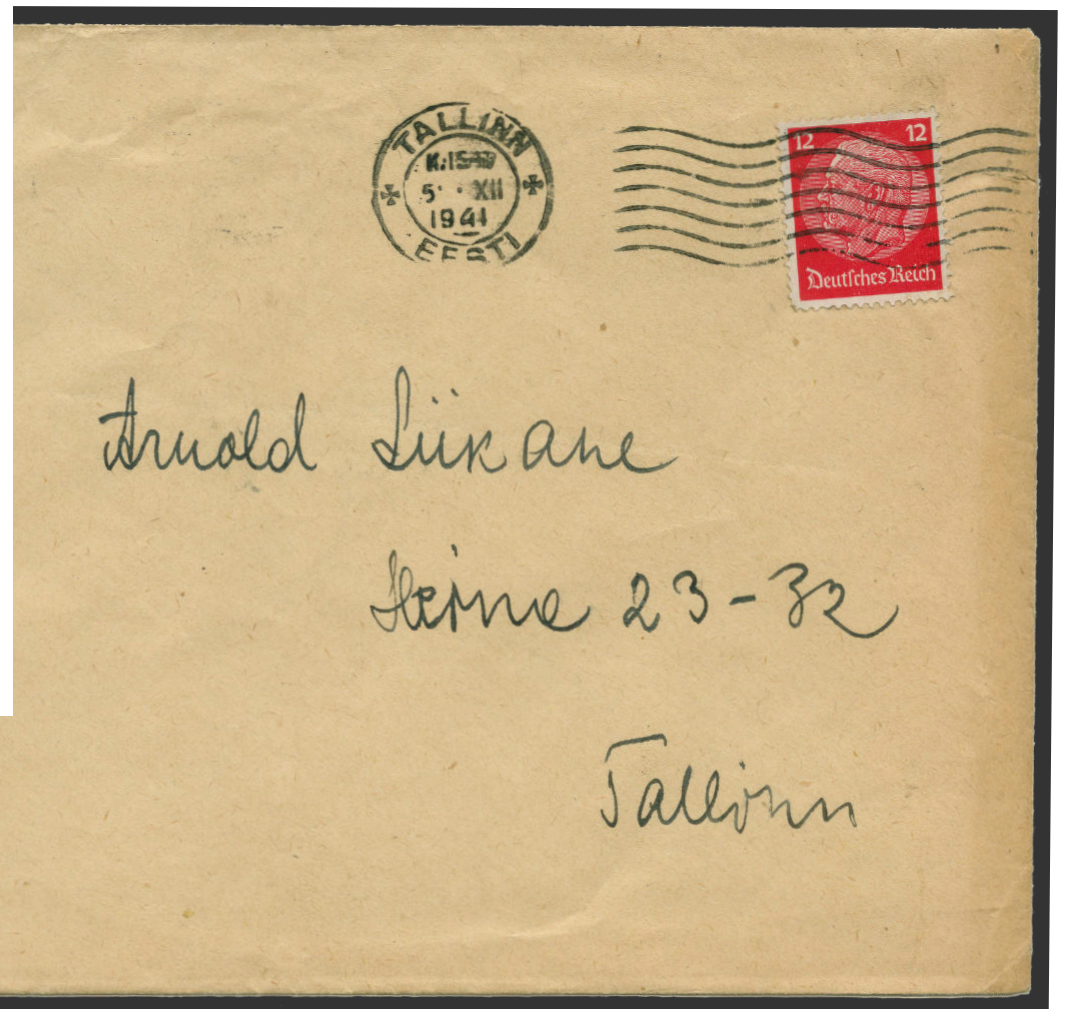 TALLINN
5 XII
1941
EESTI
12 12
Deutsches Reich
Arnold Liikane
Heina 23-32
Tallinn